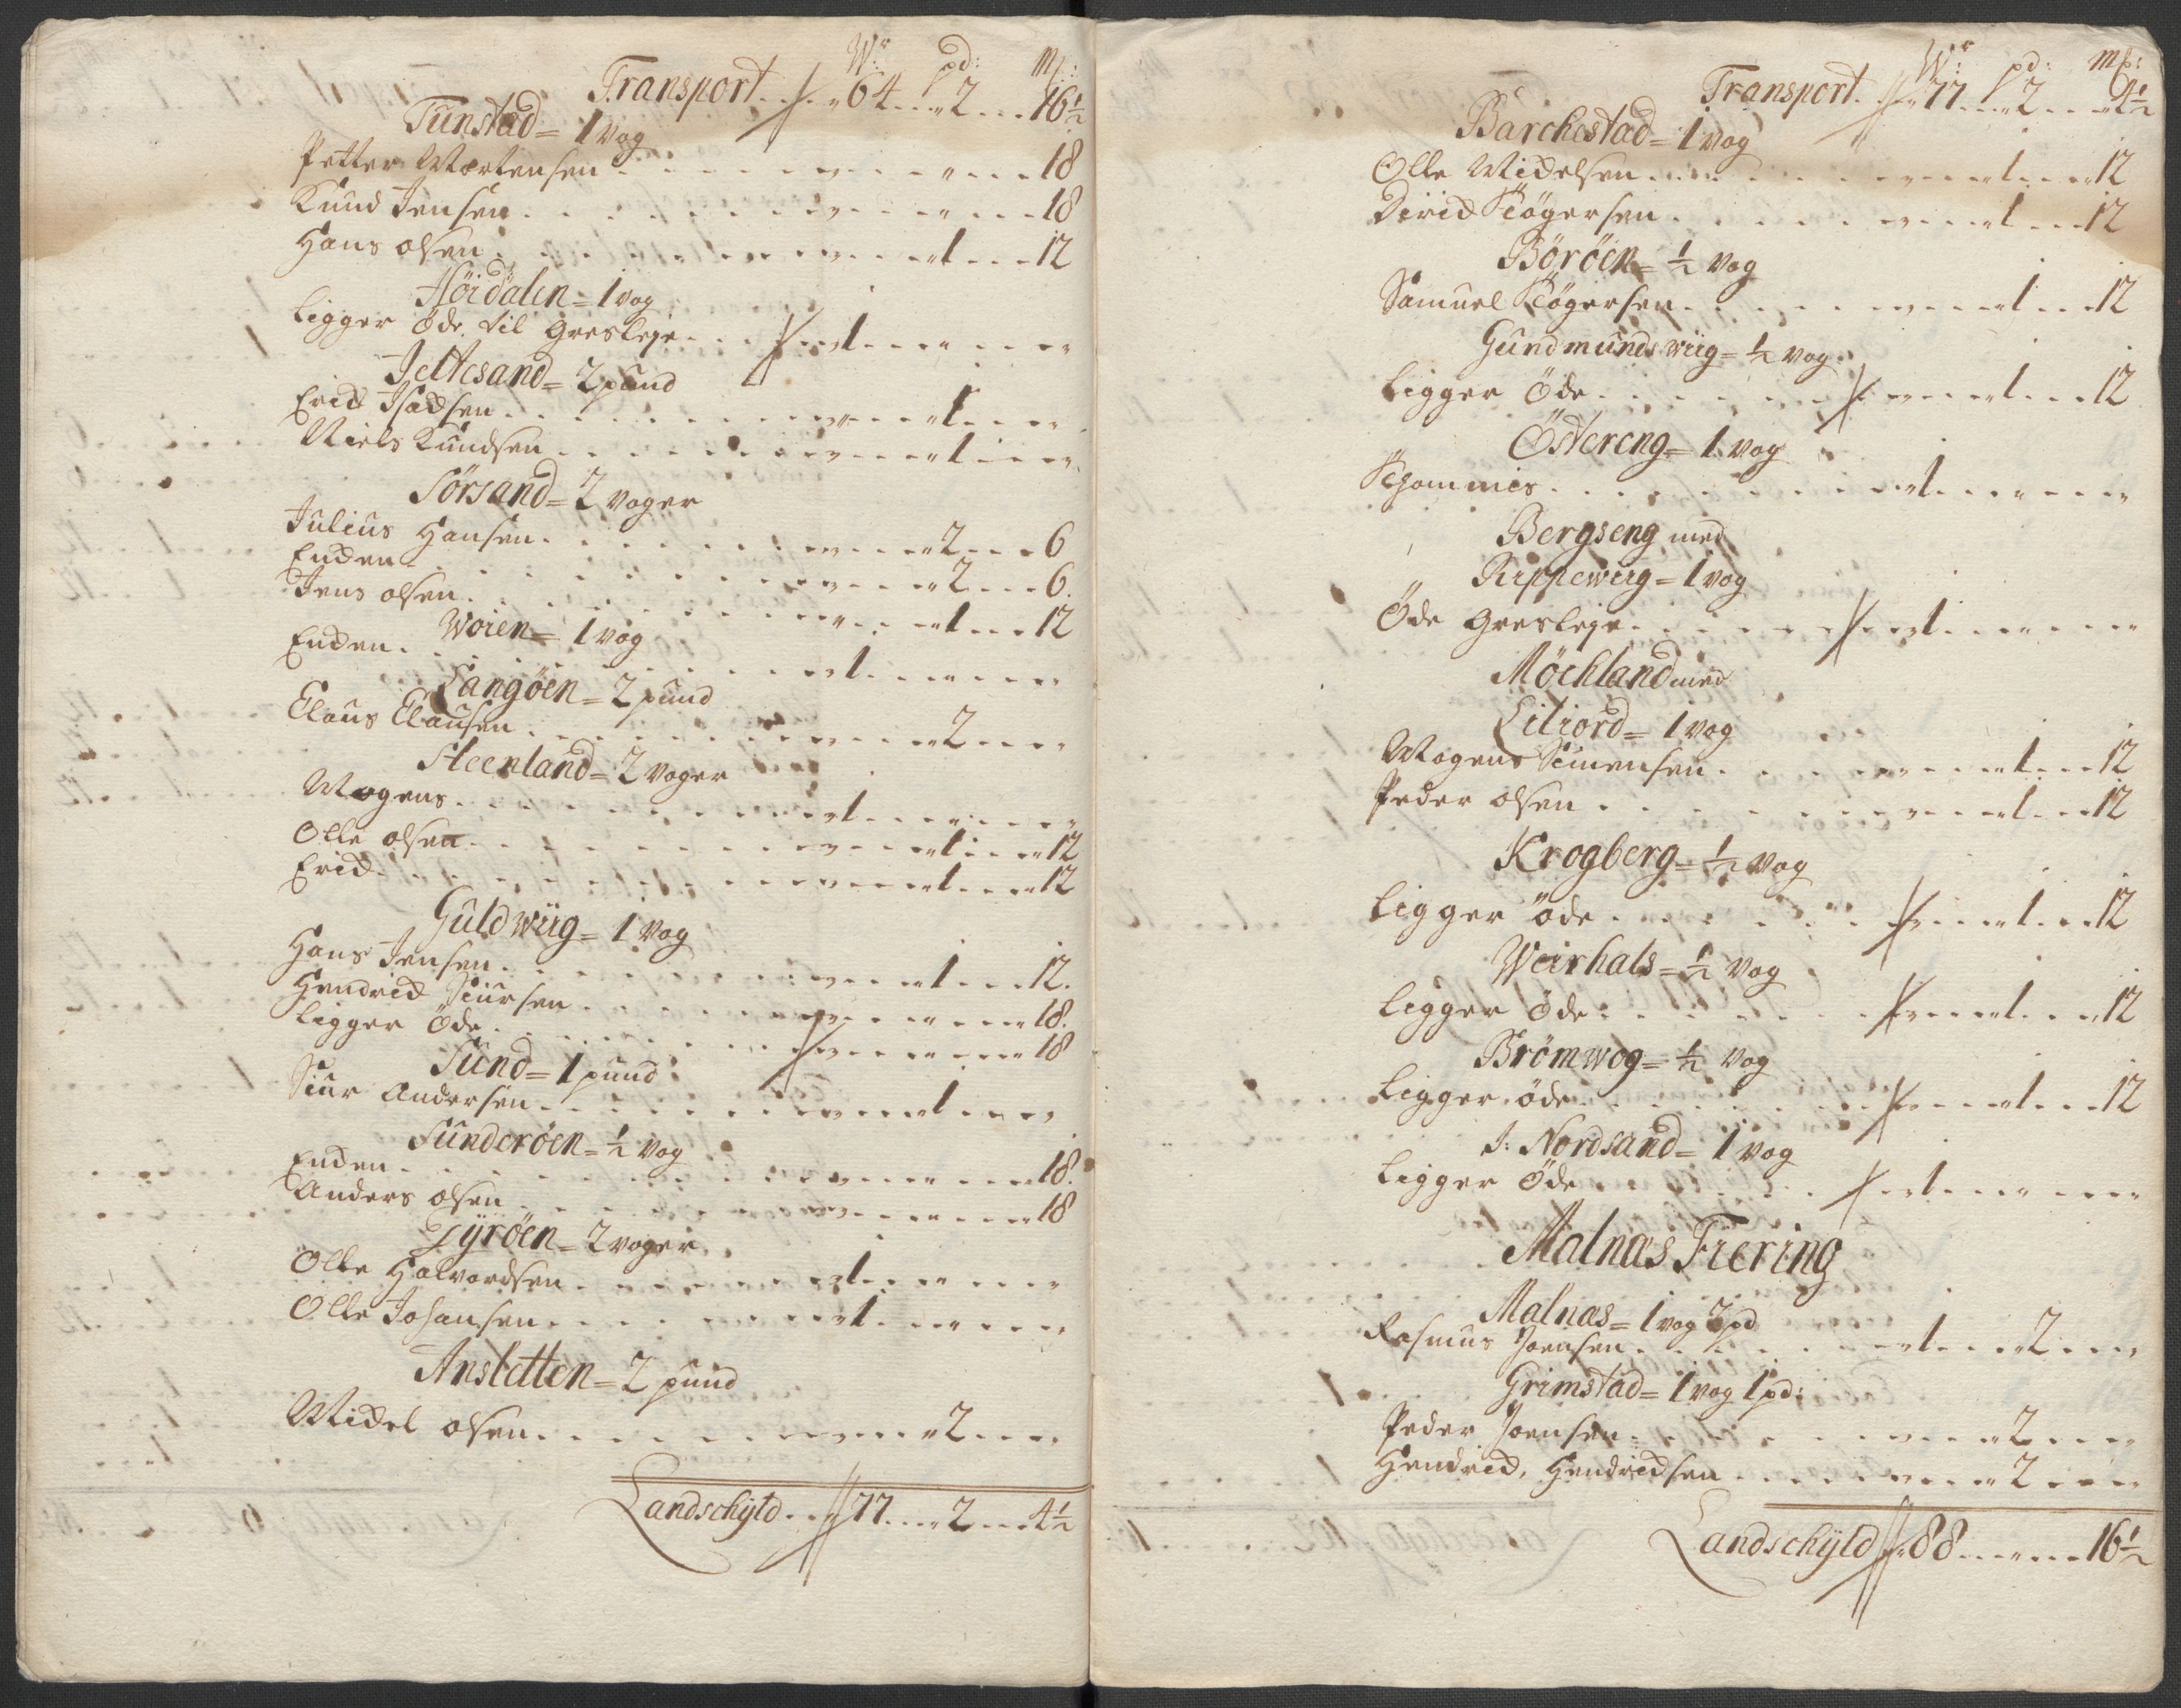 Wr pd: mk:
Transport. . . 64 . . . 2 . . . 16½
Tunstad = 1 vog
Petter Mortensen . . . . 18
Knud Jensen . . . . 18
Hans olsen . . . . 1 . . . 12
Höidalen = 1 vog
ligger öde til Græsleje . . . 1 . . . .
Jettesand = 2 pund
Erich Isachsen . . . . 1 . . .
Niels Knudsen . . . . 1 . . .
Sörsand = 2 voger
Julius Hansen . . . . 2 . . . 6
Enchen . . . . 2 . . . 6.
Jens olsen . . . . 1 . . . 12
Woien = 1 vog
Enchen . . . . 1 . . . .
Langöen = 2 pund
Claus Clausen . . . . 2 . . .
Steenland = 2 voger
Mogens . . . . 1 . . . .
Olle olsen . . . . 1 . . . 12
Erich . . . . 1 . . . 12
Guldwiig = 1 vog
Hans Jensen . . . . 1 . . . 12.
Hendrich Siursen . . . . 18.
ligger öde . . . . 18
Sund = 1 pund
Siur Andersen . . . . 1 . . .
Sunderöen = ½ vog
Enchen . . . . 18.
Anders olsen . . . . 18
Tÿröen = 2 voger
Olle Halvordsen . . . . 1 . . . .
Olle Johansen . . . . 1 . . . .
Ansletten = 2 pund
Michel olsen . . . . 2 . . .
Landschÿld . . . 77 . . . 2 . . . 4½
Wr: pd: mk:
Transport. . . 77 . . . 2 . . . 4½
Barchestad = 1 vog
Olle Michelsen . . . . 1 . . . 12
Dirich Schögersen . . . . 1 . . . 12
Böröen = ½ vog
Samuel Schögersen . . . . 1 . . . 12
Gundmunds wiig = ½ vog
ligger öde . . . . 1 . . . 12
Östereng = 1 vog
. . . . 1 . . . .
Bergseng med
Rippewiig = 1 vog
Öde Græsleje . . . . 1 . . . .
Möchland med
Litiord = 1 vog
Mogens Simensen . . . . 1 . . . 12
Peder olsen . . . . 1 . . . 12
Krogberg = ½ vog
ligger öde . . . . 1 . . . 12
Weirhals = ½ vog
ligger öde . . . . 1 . . . 12
Brömwog = ½ vog
ligger öde . . . . 1 . . . 12
J: Nordsand = 1 vog
ligger öde . . . . 1 . . . .
Malnæs Fiering
Malnæs = 1 vog 2 pd
Rasmus Joensen . . . . 1 . . . 2 . . .
Grimstad = 1 vog 1 pd:
Peder Joensen . . . . 2 . . .
Hendrich Hendrichsen . . . . 2 . . .
Landschÿld 88 . . . . 16½